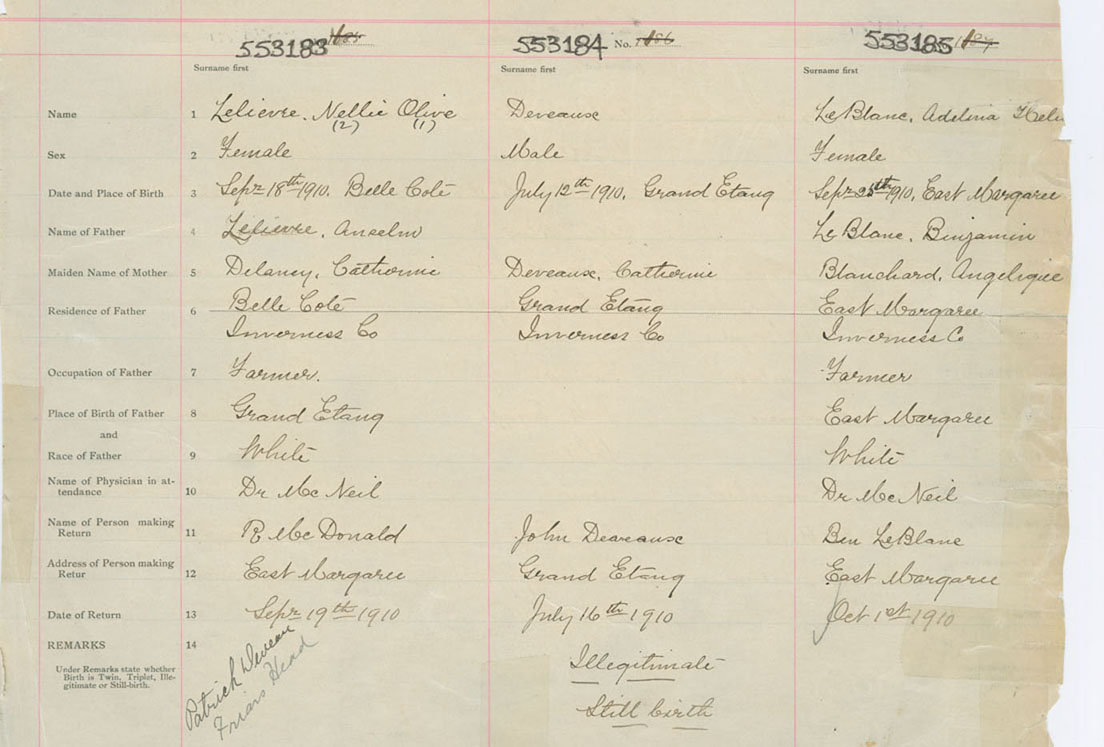 553183 1885 553184 No. 1886 553185 1887
Surname first Surname first Surname first
Name 1 Lelievre, Nellie Olive Deveause Le Blanc, Adelina
(2) (1)
Sex 2 Female Male Female
Date and Place of Birth 3 Sepr 18th 1910. Belle Coté July 12th 1910, Grand Etang Sepr 25th 1910, East Margaree
Name of Father 4 Lelievre, Anselm Le Blanc, Benjamin
Maiden Name of Mother 5 Delaney, Catherine Deveause, Catherine Blanchard, Angelique
Residence of Father 6 Belle Coté Grand Etang East Margaree
Inverness Co Inverness Co Inverness Co
Occupation of Father 7 Farmer. Farmer
Place of Birth of Father 8 Grand Etang East Margaree
and
Race of Father 9 White White
Name of Physician in at-
tendance 10 Dr Mc Neil Dr Mc Neil
Name of Person making
Return 11 R Mc Donald John Deveause Ben LeBlanc
Address of Person making
Retur 12 East Margaree Grand Etang East Margaree
Date of Return 13 Sepr 19th 1910 July 16th 1910 Oct 1st 1910
REMARKS 14
Under Remarks state whether
Birth is Twin, Triplet, Ille-
gitimate or Still-birth.
Patrick Deveau
Friars Head
Illegitimate
Still birth